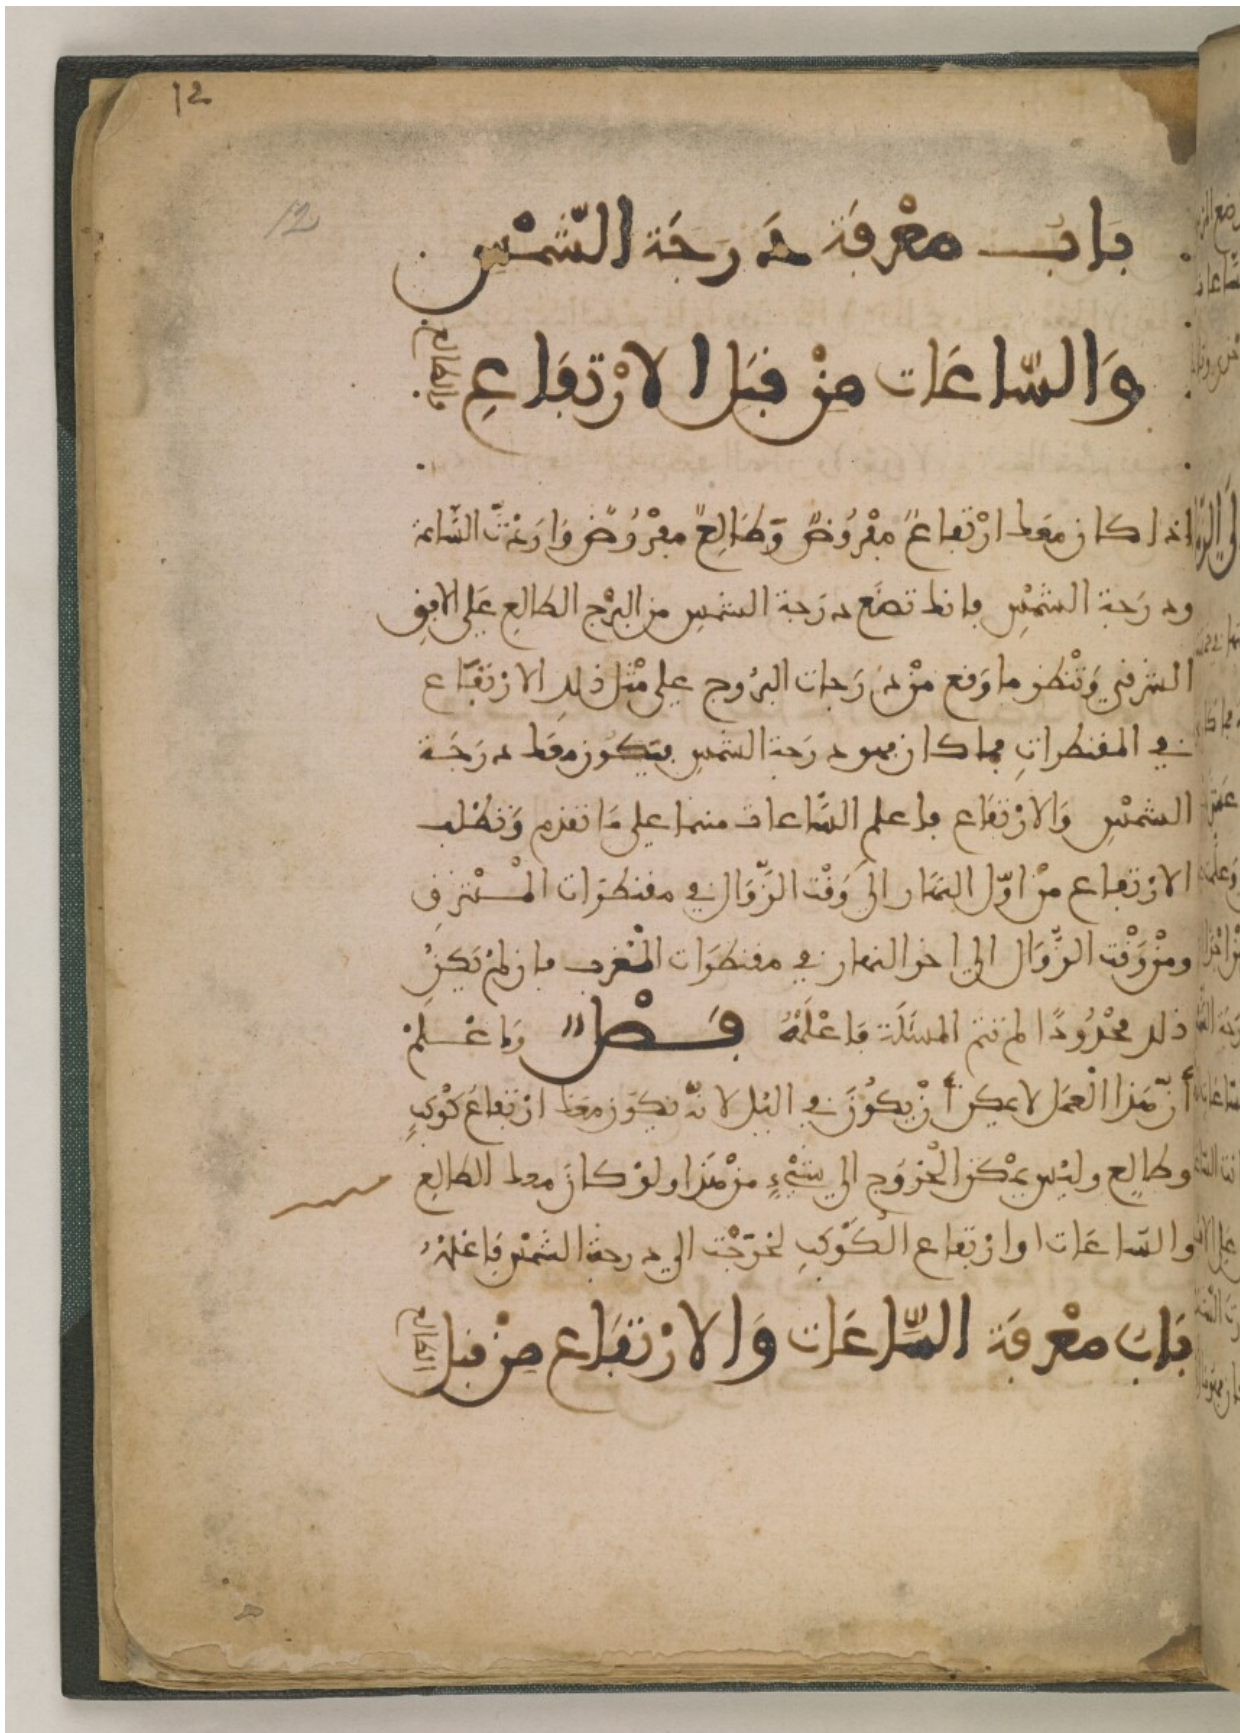 12
12
بَابُ مَعْرِفَة دَرَجَة الشَّمْسِ
وَالسَّاعَات مِنْ قِبَل الارْتفَاعِ والطالع
اذا كان معك ارْتفاعٌ مفْرُوضٌ وَطَالِعٌ مفْرُوضٌ وَارَدْتَّ السَّاعة
ودرَجة الشمْسِ فانك تضَع درَجة الشمس من البرْج الطالع عَلى الافقِ
الشرقي وَتنْظر ما وَقع منْ درَجات البرُوج على مثْل ذلك الارْتفَاع
في المقنطراتِ فما كان فهو درَجة الشمسِ فيَكُون معَك درَجَة
الشمْسِ وَالارْتفَاع فاعلم السَّاعات منهما على مَا تقدم وَتطْلب
الارْتفاع منْ اوّل النهَار الى وَقْت الزَّوَال في مقنطرَات المشْرق
ومنْ وَقْت الزَّوَال الى اخر النهار في مقنطرَات المغرب فان لمْ يَكنْ
ذلك محْدُودًا لم تتم المسئلَة فاعْلَمْهُ فَصْل وَاعْلَمْ
أنّ هَذا الْعمَل لا يمكن أنْ يكُونَ في اليْل لانّه يَكون معك ارْتفاعُ كَوْكَبٍ
وطالع وليْس يمْكن الْخرُوج الى شيْءٍ منْ هَذا ولوْ كانَ معك الطالع
والسَّاعَات او ارْتفاع الكَوْكبِ لخَرَجْت الى درجة الشمْس فَاعْلمْهُ
بَابُ مَعْرِفَة السَّاعَات وَالارْتفَاع مِنْ قبل الطالع